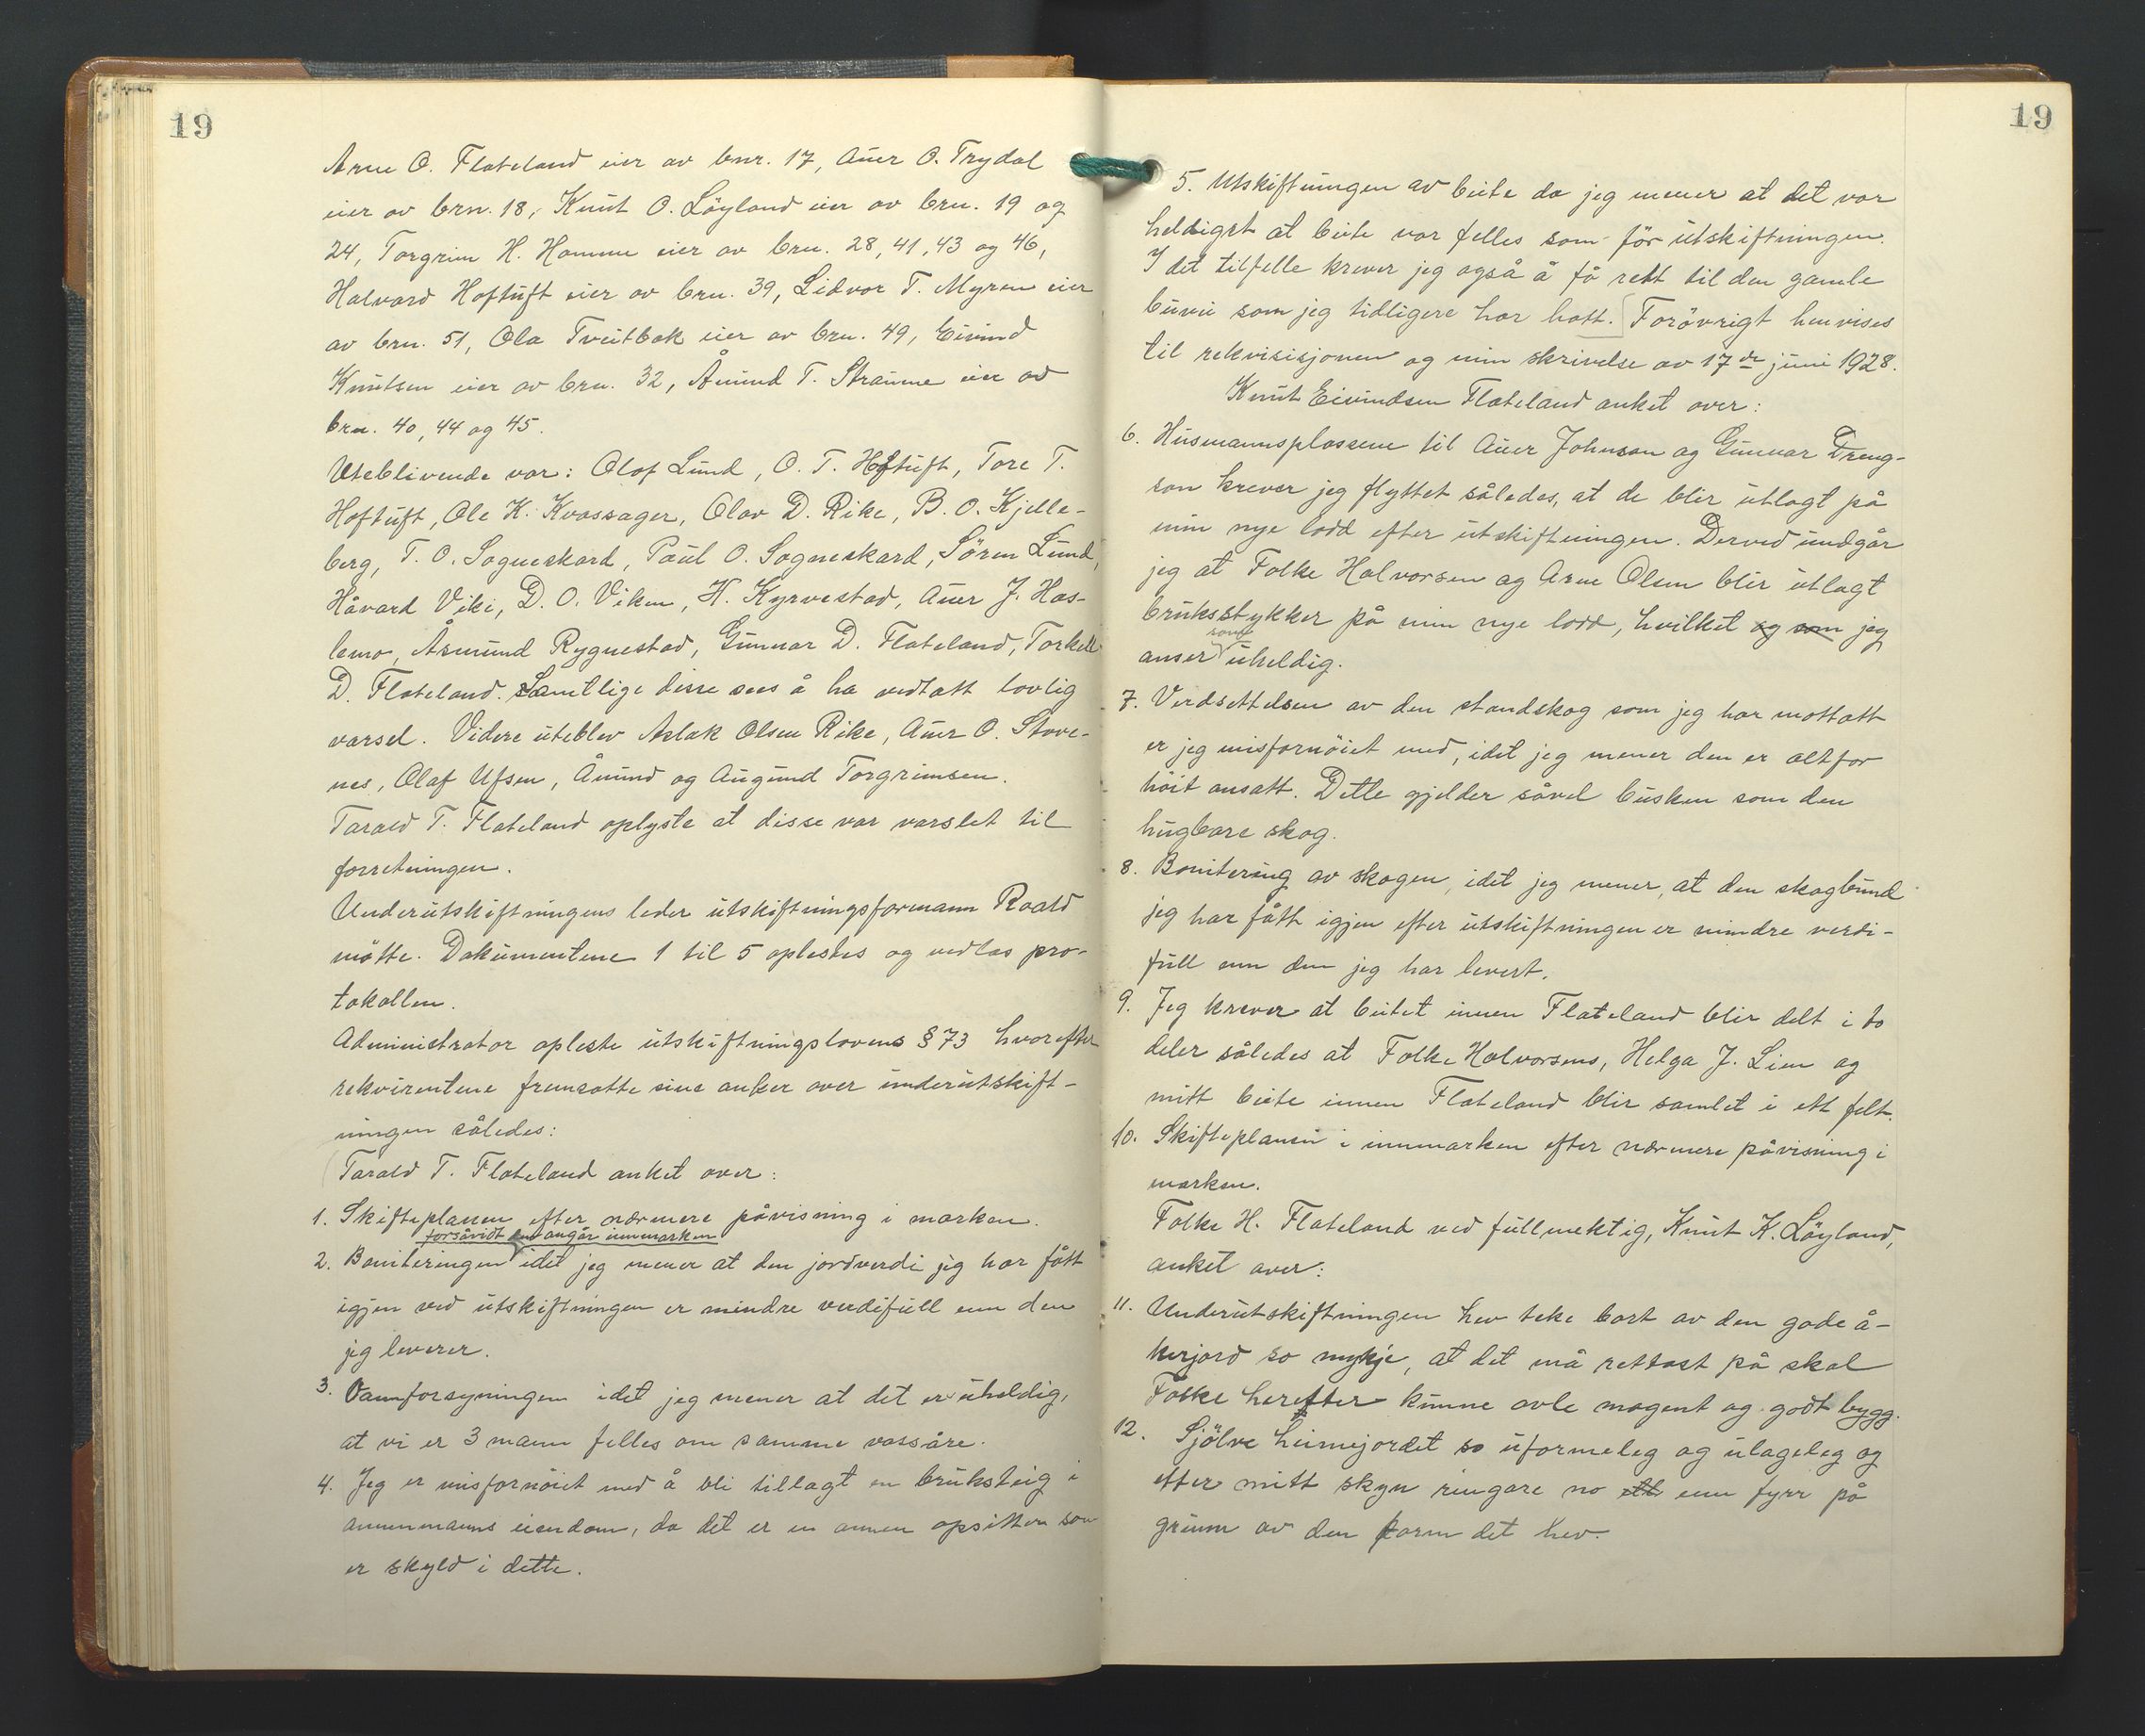 19
Arne O. Flateland eier av bnr. 17, Auer O. Trydal
eier av brn. 18, Knut O. Löyland eier av brn. 19 og
24, Torgrim H. Homme eier av brn. 28, 41, 43 og 46,
Halvard Hoftuft eier av brn. 39, Lidvor T. Myren eier
av brn. 51, Ola Tveitbak eier av brn. 49, Eivind
Knutsen eier av brn. 32, Åmund T. Straume eier av
brn. 40, 44 og 45.
Uteblivende var: Olaf Lund, O. T. Hoftuft, Tore T.
Hoftuft, Ole K. Kvassager, Olav D. Rike, B. O. Kjelle-
berg, T. O. Sogneskard, Paul O. Sogneskard, Sören Lund,
Håvard Viki, D. O. Viken, H. Kyrvestad, Auer J. Has-
lemo, Åsmund Rygnestad, Gunnar D. Flateland, Torkell
D. Flateland. Samtlige disse sees å ha vedtatt lovlig
varsel. Videre uteblev Aslak Olsen Rike, Auer O. Stave-
nes, Olaf Ufsen, Åmund og Augund Torgrimsen.
Tarald T. Flateland oplyste at disse var varslet til
forretningen.
Underutskiftningens leder utskiftningsformann Roald
møtte. Dokumentene 1 til 5 oplestes og vedlas pro-
tokollen.
Administrator opleste utskiftningslovens § 73 hvorefter
rekvirentene fremsatte sine anker over underutskift-
ningen således:
Tarald T. Flateland anket over:
1. Skifteplanen efter nærmere påvisning i marken.
forsåvidt den angår innmarken
2. Boniteringen idet jeg mener at den jordverdi jeg har fått
igjen ved utskiftningen er mindre verdifull enn den
jeg leverer.
3. Vannforsyningen idet jeg mener at det er uheldig,
at vi er 3 mann felles om samme vassåre.
4. Jeg er misfornöiet med å bli tillagt en bruksteig i
annenmanns eiendom, da det er en annen opsitter som
er skyld i dette.
19
5. Utskiftningen av beite da jeg mener at det var
heldigst at beite var felles som för utskiftningen.
I det tilfelle krever jeg også å få rett til den gamle
buvei som jeg tidligere har hatt. Forövrigt henvises
til rekvisisjonen og min skrivelse av 17de juni 1928.
Knut Eivindsen Flateland anket over:
6. Husmannsplassene til Auer Johnson og Gunnar Dreng-
son krever jeg flyttet således, at de blir utlagt på
min nye lodd efter utskiftningen. Derved undgår
jeg at Folke Halvorsen og Arne Olsen blir utlagt
bruksstykker på min nye lodd, hvilket og som jeg
som
anser uheldig.
7. Verdsettelsen av den standskog som jeg har mottatt
er jeg misfornöiet med, idet jeg mener den er altfor
höit ansatt. Dette gjelder såvel busken som den
hugbare skog.
8. Bonitering av skogen, idet jeg mener, at den skogbund
jeg har fått igjen efter utskiftningen er mindre verdi-
full enn den jeg har levert.
9. Jeg krever at beitet innen Flateland blir delt i to
deler således at Folke Halvorsens, Helga J. Lien og
mitt beite innen Flateland blir samlet i ett felt.
10. Skifteplanen i innmarken efter nærmere påvisning i
marken.
Folke H. Flateland ved fullmektig, Knut K. Löyland,
anket over:
11. Underutskiftningen hev teke bort av den gode å-
kerjord so mykje, at det må rettast på skal
Folke herefter kunne avle mogent og godt bygg.
12. Sjölve heimejordet so uformeleg og ulageleg og
efter mitt skyn ringare no ett enn fyrr på
grunn av den form det hev.